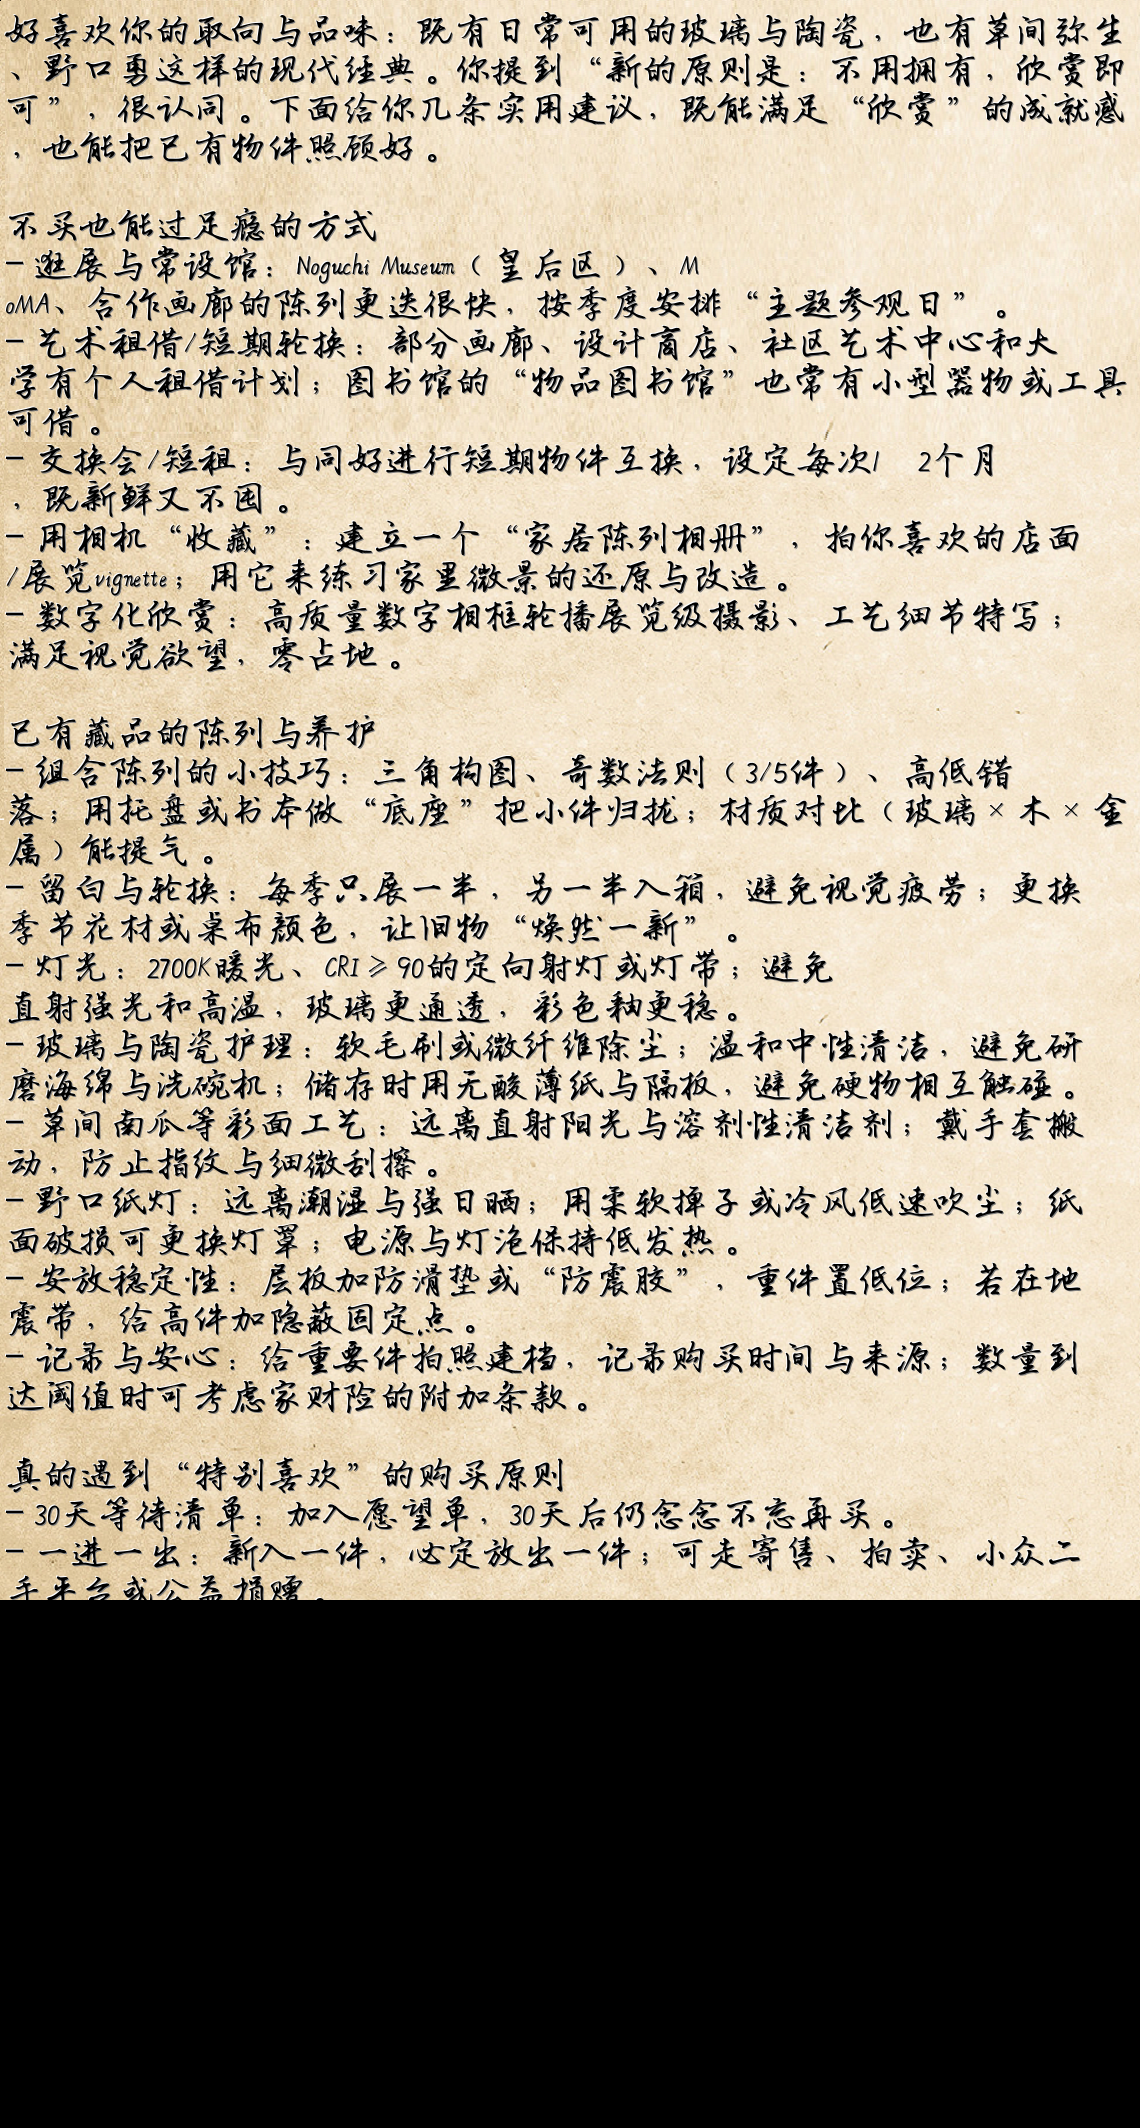 好喜欢你的取向与品味：既有日常可用的玻璃与陶瓷，也有草间弥生
、野口勇这样的现代经典。你提到“新的原则是：不用拥有，欣赏即
可”，很认同。下面给你几条实用建议，既能满足“欣赏”的成就感
，也能把已有物件照顾好。
不买也能过足瘾的方式
- 逛展与常设馆：Noguchi Museum（皇后区）、M
oMA、合作画廊的陈列更迭很快，按季度安排“主题参观日”。
- 艺术租借/短期轮换：部分画廊、设计商店、社区艺术中心和大
学有个人租借计划；图书馆的“物品图书馆”也常有小型器物或工具
可借。
- 交换会/短租：与同好进行短期物件互换，设定每次1 2个月
，既新鲜又不囤。
- 用相机“收藏”：建立一个“家居陈列相册”，拍你喜欢的店面
/展览vignette；用它来练习家里微景的还原与改造。
- 数字化欣赏：高质量数字相框轮播展览级摄影、工艺细节特写；
满足视觉欲望，零占地。
已有藏品的陈列与养护
- 组合陈列的小技巧：三角构图、奇数法则（3/5件）、高低错
落；用托盘或书本做“底座”把小件归拢；材质对比（玻璃×木×金
属）能提气。
- 留白与轮换：每季只展一半，另一半入箱，避免视觉疲劳；更换
季节花材或桌布颜色，让旧物“焕然一新”。
- 灯光：2700K暖光、CRI≥90的定向射灯或灯带；避免
直射强光和高温，玻璃更通透，彩色釉更稳。
- 玻璃与陶瓷护理：软毛刷或微纤维除尘；温和中性清洁，避免研
磨海绵与洗碗机；储存时用无酸薄纸与隔板，避免硬物相互触碰。
- 草间南瓜等彩面工艺：远离直射阳光与溶剂性清洁剂；戴手套搬
动，防止指纹与细微刮擦。
- 野口纸灯：远离潮湿与强日晒；用柔软掸子或冷风低速吹尘；纸
面破损可更换灯罩；电源与灯泡保持低发热。
- 安放稳定性：层板加防滑垫或“防震胶”，重件置低位；若在地
震带，给高件加隐蔽固定点。
- 记录与安心：给重要件拍照建档，记录购买时间与来源；数量到
达阈值时可考虑家财险的附加条款。
真的遇到“特别喜欢”的购买原则
- 30天等待清单：加入愿望单，30天后仍念念不忘再买。
- 一进一出：新入一件，必定放出一件；可走寄售、拍卖、小众二
手平台或公益捐赠。